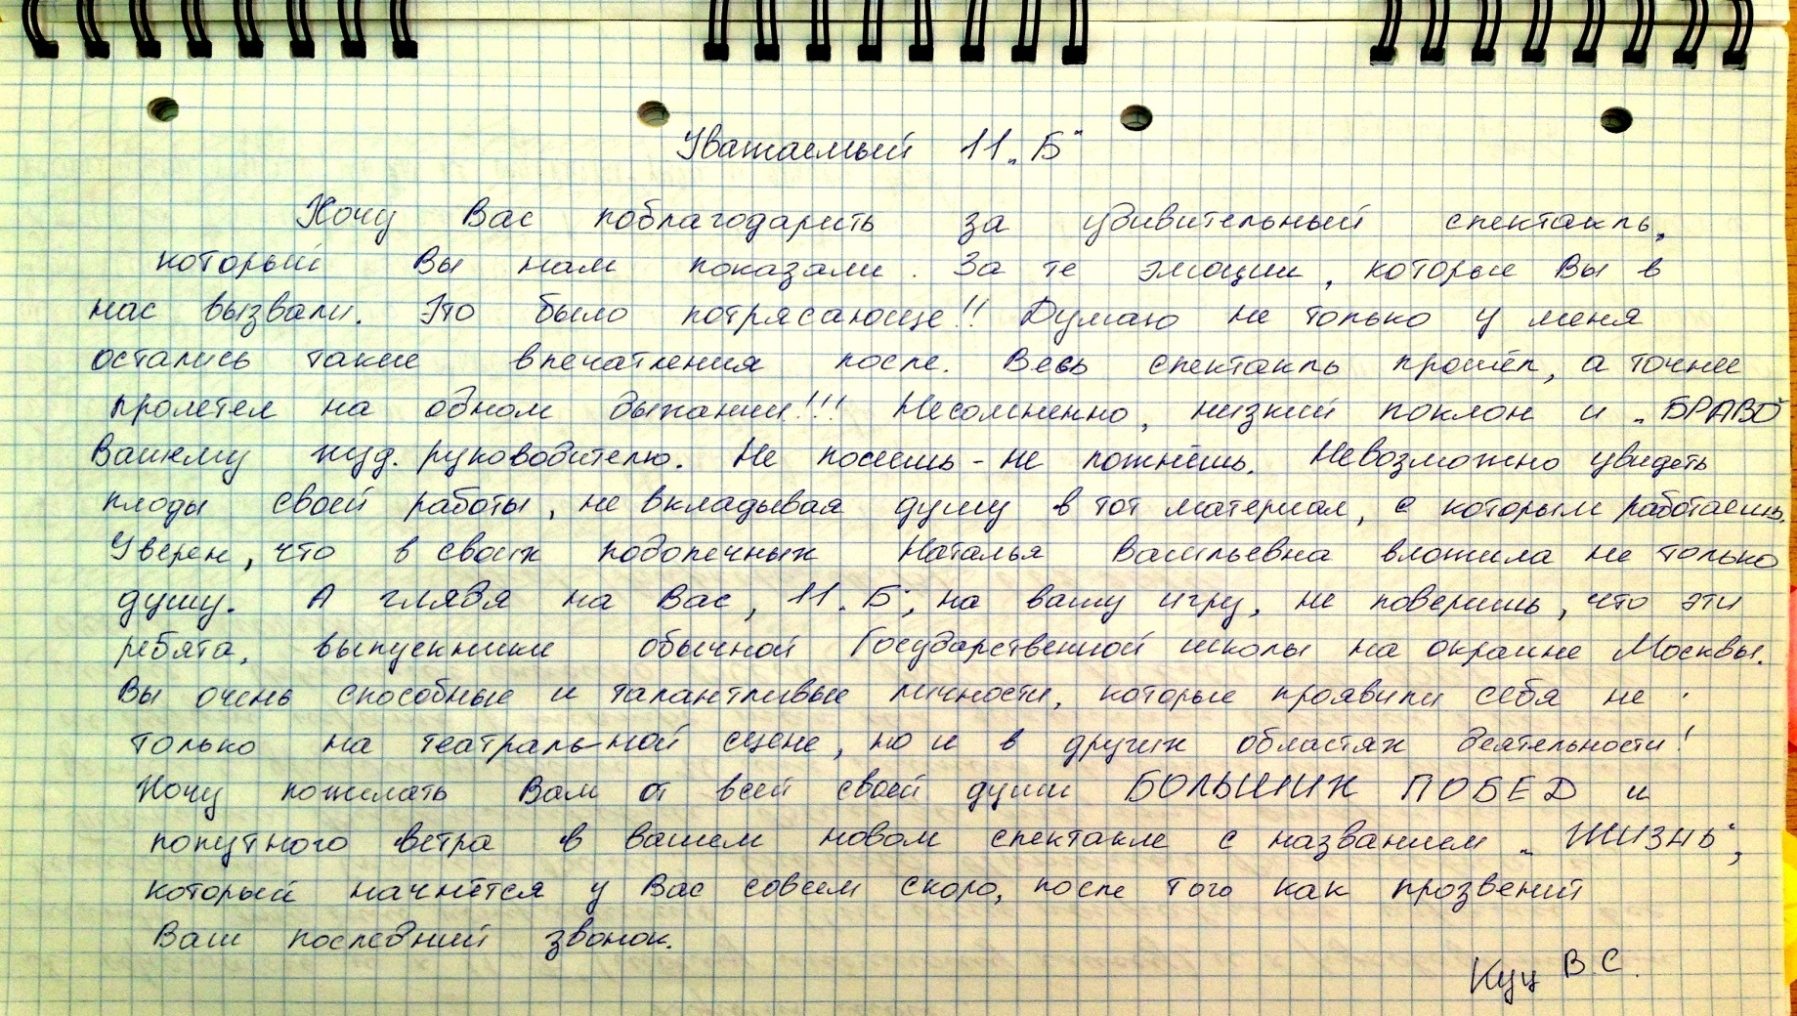 Уважаемый 11 „Б"
Хочу Вас поблагодарить за удивительный спектакль,
который Вы нам показали. За те эмоции, которые Вы в
нас вызвали. Это было потрясающе!! Думаю не только у меня
остались такие впечатления после. Весь спектакль прошёл, а точнее
пролетел на одном дыхании!!! Несомненно, низкий поклон и „БРАВО"
Вашему худ. руководителю. Не посеешь - не пожнёшь. Невозможно увидеть
плоды своей работы, не вкладывая душу в тот материал, с которым работаешь.
Уверен, что в своих подопечных Наталья Васильевна вложила не только
душу. А глядя на Вас, 11 „Б", на вашу игру, не поверишь, что эти
ребята, выпускники обычной Государственной школы на окраине Москвы.
Вы очень способные и талантливые личности, которые проявили себя не
только на театральной сцене, но и в других областях деятельности!
Хочу пожелать Вам от всей своей души БОЛЬШИХ ПОБЕД и
попутного ветра в вашем новом спектакле с названием „ЖИЗНЬ",
который начнётся у Вас совсем скоро, после того как прозвенит
Ваш последний звонок.
Куц В.С.